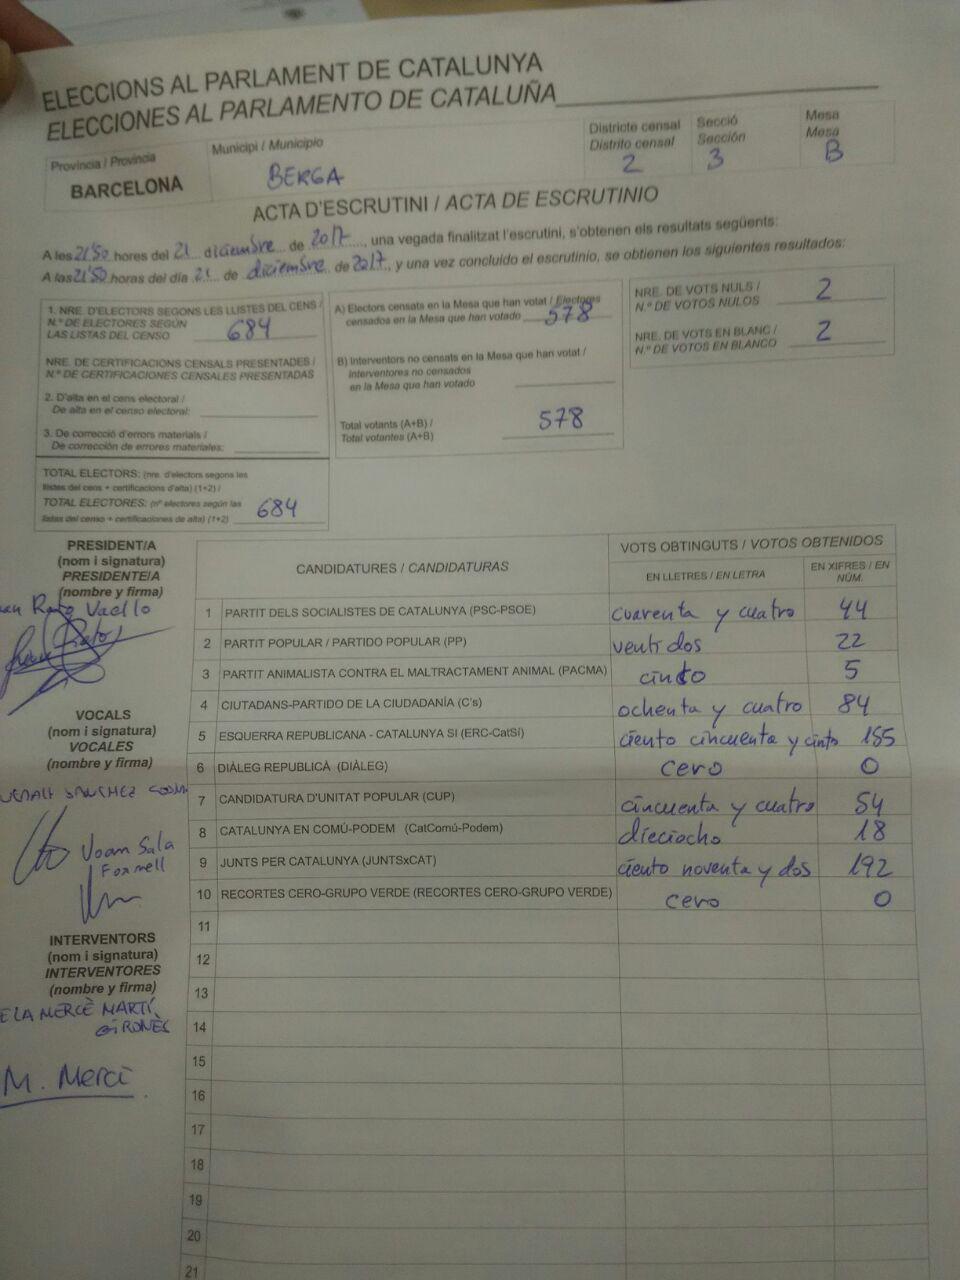 ELECCIONS AL PARLAMENT DE CATALUNYA
ELECCIONES AL PARLAMENTO DE CATALUÑA
Provincia / Provincia
BARCELONA
Municipi / Municipio
BERGA
Districte censal
Distrito censal
2
Secció
Sección
3
Mesa
Mesa
B
ACTA D'ESCRUTINI / ACTA DE ESCRUTINIO
A les 21'50 hores del 21 diciembre de 2017, una vegada finalitzat l'escrutini, s'obtenen els resultats següents:
A las 21'50 horas del día 21 de diciembre de 2017, y una vez concluido el escrutinio, se obtienen los siguientes resultados:
1. NRE. D'ELECTORS SEGONS LES LLISTES DEL CENS /
N.º DE ELECTORES SEGÚN
LAS LISTAS DEL CENSO 684
NRE. DE CERTIFICACIONS CENSALS PRESENTADES /
N.º DE CERTIFICACIONES CENSALES PRESENTADAS
2. D'alta en el cens electoral /
De alta en el censo electoral:
3. De correcció d'errors materials /
De corrección de errores materiales:
TOTAL ELECTORS: (nre. d'electors segons les
llistes del cens + certificacions d'alta) (1+2) /
TOTAL ELECTORES: (nº electores según las
listas del censo + certificaciones de alta) (1+2) 684
A) Electors censats en la Mesa que han votat / Electores
censados en la Mesa que han votado 578
B) Interventors no censats en la Mesa que han votat /
Interventores no censados
en la Mesa que han votado
Total votants (A+B) /
Total votantes (A+B) 578
NRE. DE VOTS NULS /
N.º DE VOTOS NULOS 2
NRE. DE VOTS EN BLANC /
N.º DE VOTOS EN BLANCO 2
PRESIDENT/A
(nom i signatura)
PRESIDENTE/A
(nombre y firma)
Vaello
VOCALS
(nom i signatura)
VOCALES
(nombre y firma)
SANCHEZ
Joan Sala
Formell
INTERVENTORS
(nom i signatura)
INTERVENTORES
(nombre y firma)
ELA MERCÈ MARTÍ
GIRONÈS
M. Mercè
CANDIDATURES / CANDIDATURAS
VOTS OBTINGUTS / VOTOS OBTENIDOS
EN LLETRES / EN LETRA
EN XIFRES / EN NÚM.
1 PARTIT DELS SOCIALISTES DE CATALUNYA (PSC-PSOE) cuarenta y cuatro 44
2 PARTIT POPULAR / PARTIDO POPULAR (PP) ventidos 22
3 PARTIT ANIMALISTA CONTRA EL MALTRACTAMENT ANIMAL (PACMA) cinco 5
4 CIUTADANS-PARTIDO DE LA CIUDADANÍA (C's) ochenta y cuatro 84
5 ESQUERRA REPUBLICANA - CATALUNYA SI (ERC-CatSí) ciento cincuenta y cinto 155
6 DIÀLEG REPUBLICÀ (DIÀLEG) cero 0
7 CANDIDATURA D'UNITAT POPULAR (CUP) cincuenta y cuatro 54
8 CATALUNYA EN COMÚ-PODEM (CatComú-Podem) dieciocho 18
9 JUNTS PER CATALUNYA (JUNTSxCAT) ciento noventa y dos 192
10 RECORTES CERO-GRUPO VERDE (RECORTES CERO-GRUPO VERDE) cero 0
11
12
13
14
15
16
17
18
19
20
21